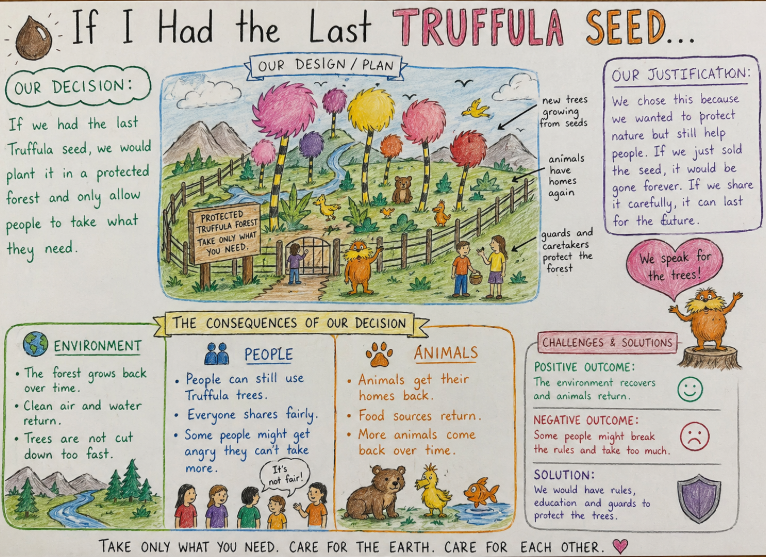 If I Had the Last TRUFFULA SEED...
OUR DECISION:
If we had the last
Truffula seed, we would
plant it in a protected
forest and only allow
people to take what
they need.
OUR DESIGN / PLAN
PROTECTED
TRUFFULA FOREST
TAKE ONLY WHAT
YOU NEED.
new trees
growing
from seeds
animals
have
homes
again
guards and
caretakers
protect the
forest
OUR JUSTIFICATION:
We chose this because
we wanted to protect
nature but still help
people. If we just sold
the seed, it would be
gone forever. If we share
it carefully, it can last
for the future.
We speak for
the trees!
THE CONSEQUENCES OF OUR DECISION
ENVIRONMENT
• The forest grows back
over time.
• Clean air and water
return.
• Trees are not cut
down too fast.
PEOPLE
• People can still use
Truffula trees.
• Everyone shares fairly.
• Some people might get
angry they can't take
more.
It's
not fair!
ANIMALS
• Animals get their
homes back.
• Food sources return.
• More animals come
back over time.
CHALLENGES & SOLUTIONS
POSITIVE OUTCOME:
The environment recovers
and animals return.
NEGATIVE OUTCOME:
Some people might break
the rules and take too much.
SOLUTION:
We would have rules,
education and guards to
protect the trees.
TAKE ONLY WHAT YOU NEED. CARE FOR THE EARTH. CARE FOR EACH OTHER.